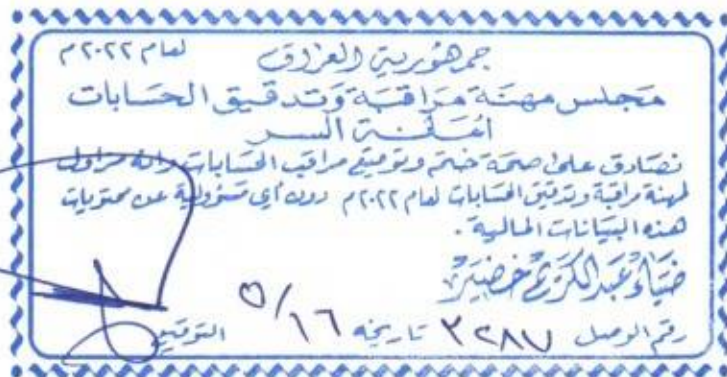 جمهورية العراق لعام ٢٠٢٢م
مجلس مهنة مراقبة وتدقيق الحسابات
أمانة السر
نصادق على صحة ختم وتوقيع مراقب الحسابات وانه مزاول
لمهنة مراقبة وتدقيق الحسابات لعام ٢٠٢٢م دون أي مسؤولية عن محتويات
هذه البيانات المالية.
ضياء عبد الكريم خضير
رقم الوصل ٣٢٨٧ تاريخه ٥/١٦ التوقيع